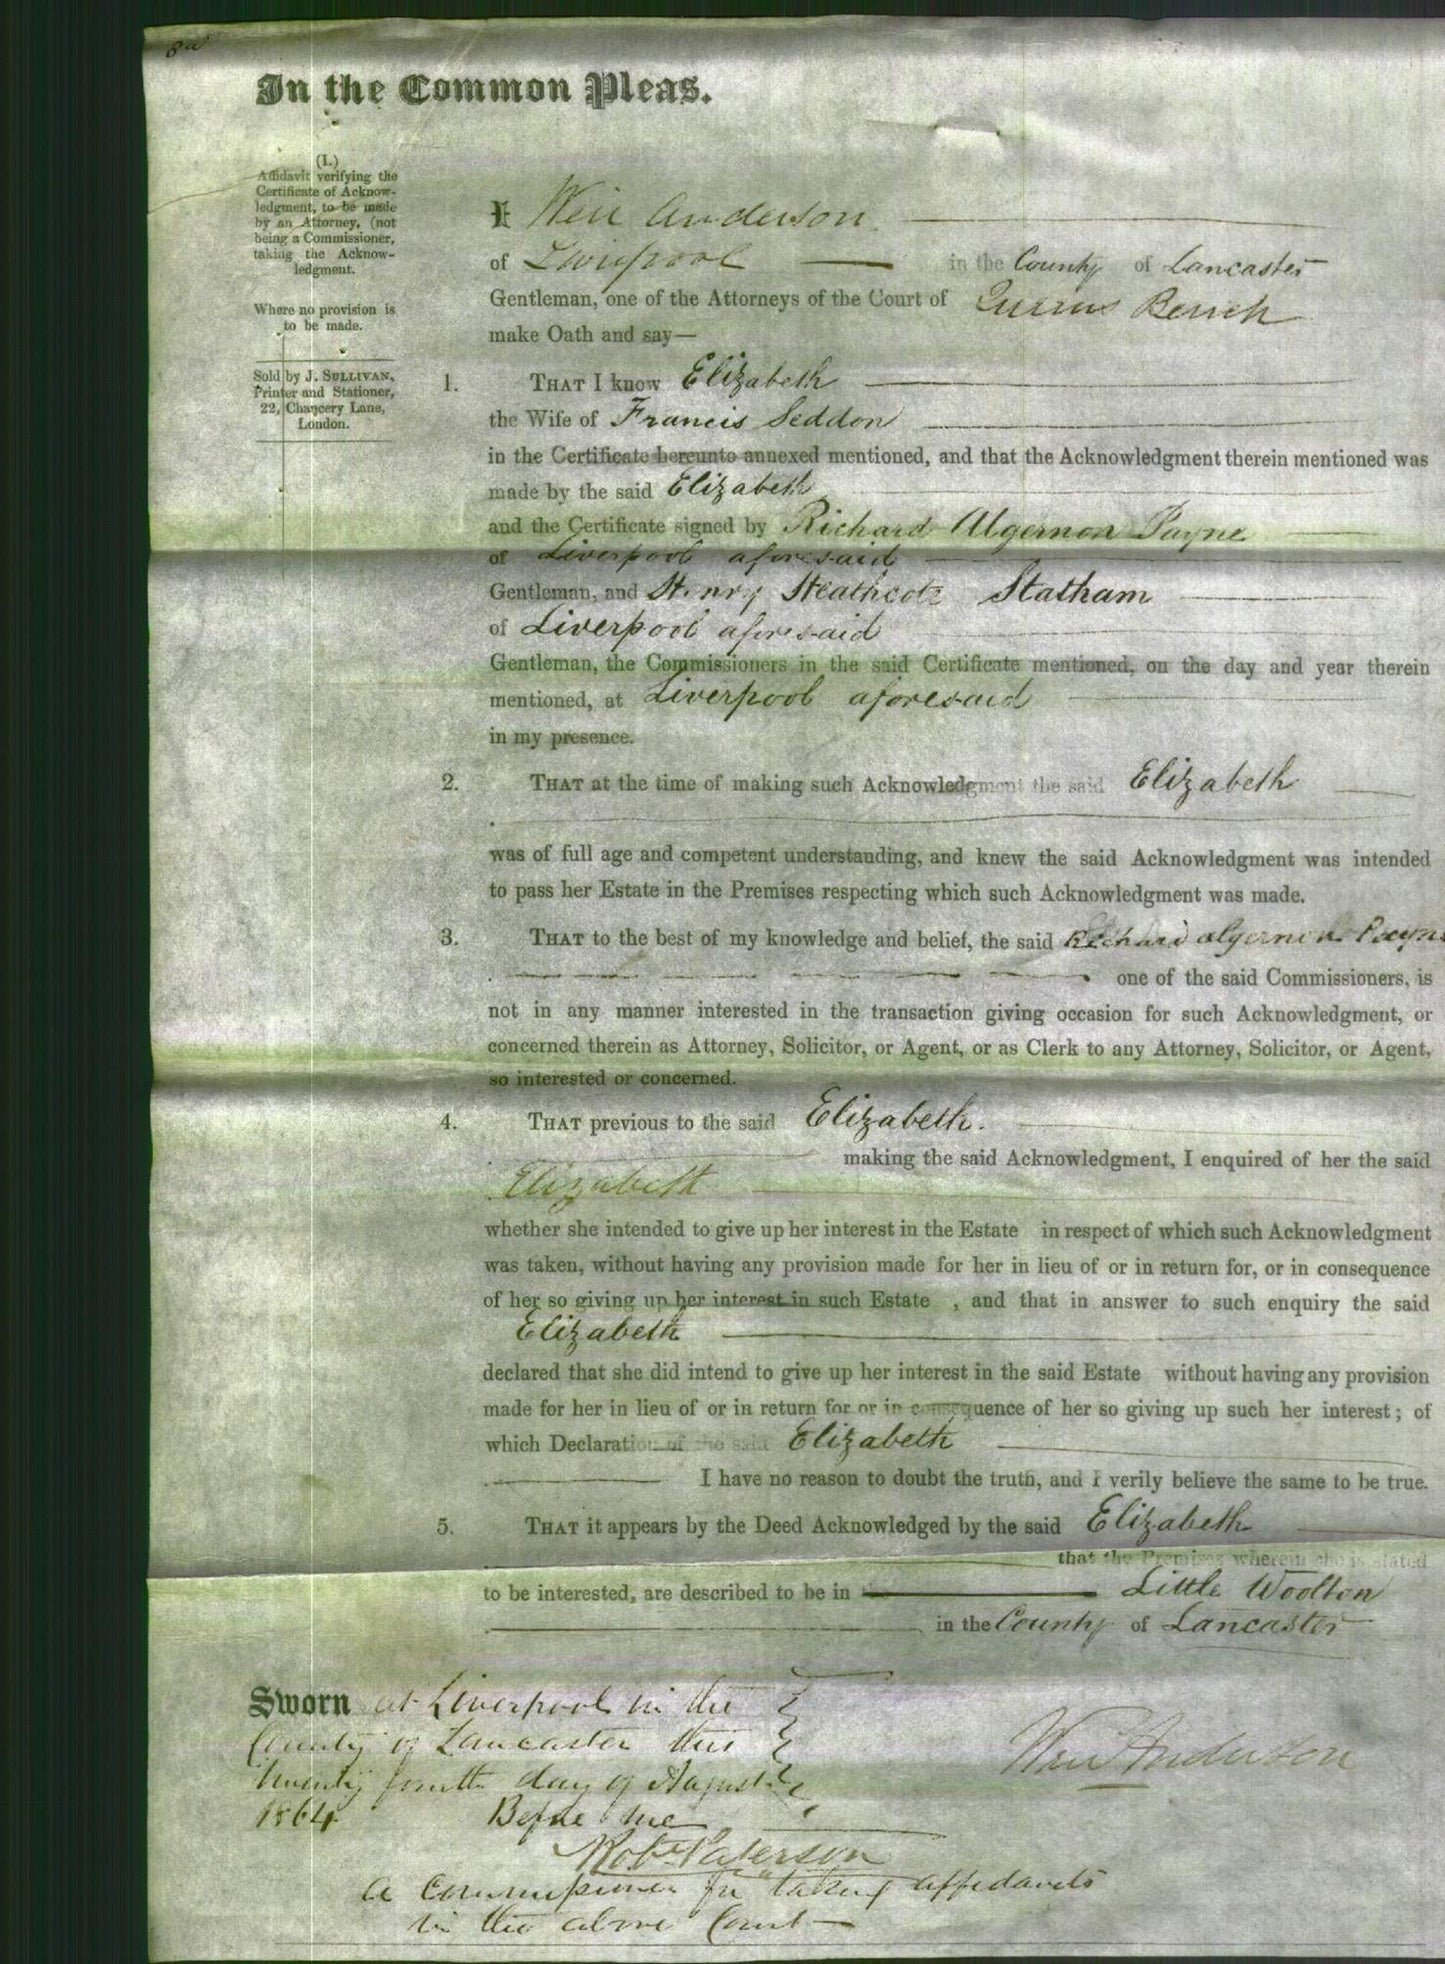 In the Common Pleas.
(I.)
Affidavit verifying the
Certificate of Acknow-
ledgment, to be made
by an Attorney, (not
being a Commissioner,
taking the Acknow-
ledgment.
Where no provision is
to be made.
Sold by J. SULLIVAN,
Printer and Stationer,
22, Chancery Lane,
London.
I Weir Anderson
of Liverpool in the County of Lancaster
Gentleman, one of the Attorneys of the Court of Queens Bench
make Oath and say—
1. THAT I know Elizabeth
the Wife of Francis Seddon
in the Certificate hereunto annexed mentioned, and that the Acknowledgment therein mentioned was
made by the said Elizabeth
and the Certificate signed by Richard Algernon Payne
of Liverpool aforesaid
Gentleman, and Henry Heathcote Statham
of Liverpool aforesaid
Gentleman, the Commissioners in the said Certificate mentioned, on the day and year therein
mentioned, at Liverpool aforesaid
in my presence.
2. THAT at the time of making such Acknowledgment the said Elizabeth
was of full age and competent understanding, and knew the said Acknowledgment was intended
to pass her Estate in the Premises respecting which such Acknowledgment was made.
3. THAT to the best of my knowledge and belief, the said Richard Algernon Payne
one of the said Commissioners, is
not in any manner interested in the transaction giving occasion for such Acknowledgment, or
concerned therein as Attorney, Solicitor, or Agent, or as Clerk to any Attorney, Solicitor, or Agent,
so interested or concerned.
4. THAT previous to the said Elizabeth.
making the said Acknowledgment, I enquired of her the said
Elizabeth
whether she intended to give up her interest in the Estate in respect of which such Acknowledgment
was taken, without having any provision made for her in lieu of or in return for, or in consequence
of her so giving up her interest in such Estate , and that in answer to such enquiry the said
Elizabeth
declared that she did intend to give up her interest in the said Estate without having any provision
made for her in lieu of or in return for or in consequence of her so giving up such her interest; of
which Declaration of the said Elizabeth
I have no reason to doubt the truth, and I verily believe the same to be true.
5. THAT it appears by the Deed Acknowledged by the said Elizabeth
that the Premises wherein she is stated
to be interested, are described to be in Little Woolton
in the County of Lancaster
Sworn at Liverpool in the
County of Lancaster this
twenty fourth day of August
1864 Before me
Weir Anderson
Robt Paterson
a Commissioner for taking affidavits
in the above Court